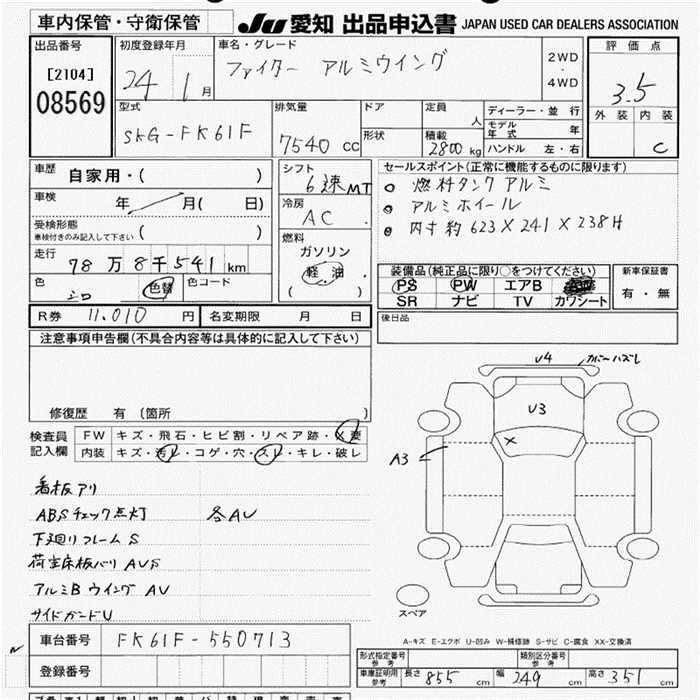 車内保管・守衛保管 JU 愛知 出品申込書 JAPAN USED CAR DEALERS ASSOCIATION
出品番号
[2104]
08569
初度登録年月
24 1月
車名・グレード
ファイター アルミウイング
2WD
・
4WD
評価点
3.5
外装 内装
C
型式
SKG-FK61F
排気量
7540 cc
ドア
形状
定員
人
積載
2800 kg
ディーラー・並行
モデル年式 年
ハンドル 左・右
車歴
自家用・( )
車検
年 月( 日)
受検形態
車検付きのみ記入して下さい ( )
走行
78万8千541km
色
シロ
色替
色コード
シフト
6速MT
冷房
AC
燃料
ガソリン
軽油
( )
セールスポイント(正常に機能するものに限ります)
○ 燃料タンクアルミ
○ アルミホイール
○ 内寸約623×241×238H
装備品(純正品に限り○をつけてください)
PS PW エアB
SR ナビ TV カワシート
新車保証書
有・無
R券 11,010 円 名変期限 月 日
後日品
注意事項申告欄(不具合内容等は具体的に記入して下さい)
修復歴 有(箇所 )
検査員記入欄
FW キズ・飛石・ヒビ割・リペア跡・X要
内装 キズ・汚レ・コゲ・穴・スレ・キレ・破レ
看板アリ
ABSチェック点灯 各AU
下廻りフレームS
荷室床板バリAUS
アルミBウイングAU
サイドガードU
U4 カバーハズレ
U3
×
A3
スペア
A-キズ E-エクボ U-凹み W-補修跡 S-サビ C-腐食 XX-交換済
車台番号 FK61F-550713
登録番号
形式指定番号 参考
類別区分番号 参考
車庫証明用 参考 長さ 855 cm 幅 249 cm 高さ 351 cm